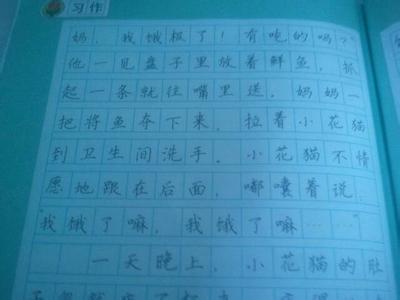 习作
妈，我饿极了！有吃的吗？"
他一见盘子里放着鲜鱼，抓
起一条就往嘴里送，妈妈一
把将鱼夺下来，拉着小花猫
到卫生间洗手。小花猫不情
愿地跟在后面，嘟囔着说：
"我饿了嘛，我饿了嘛……"
一天晚上，小花猫的肚